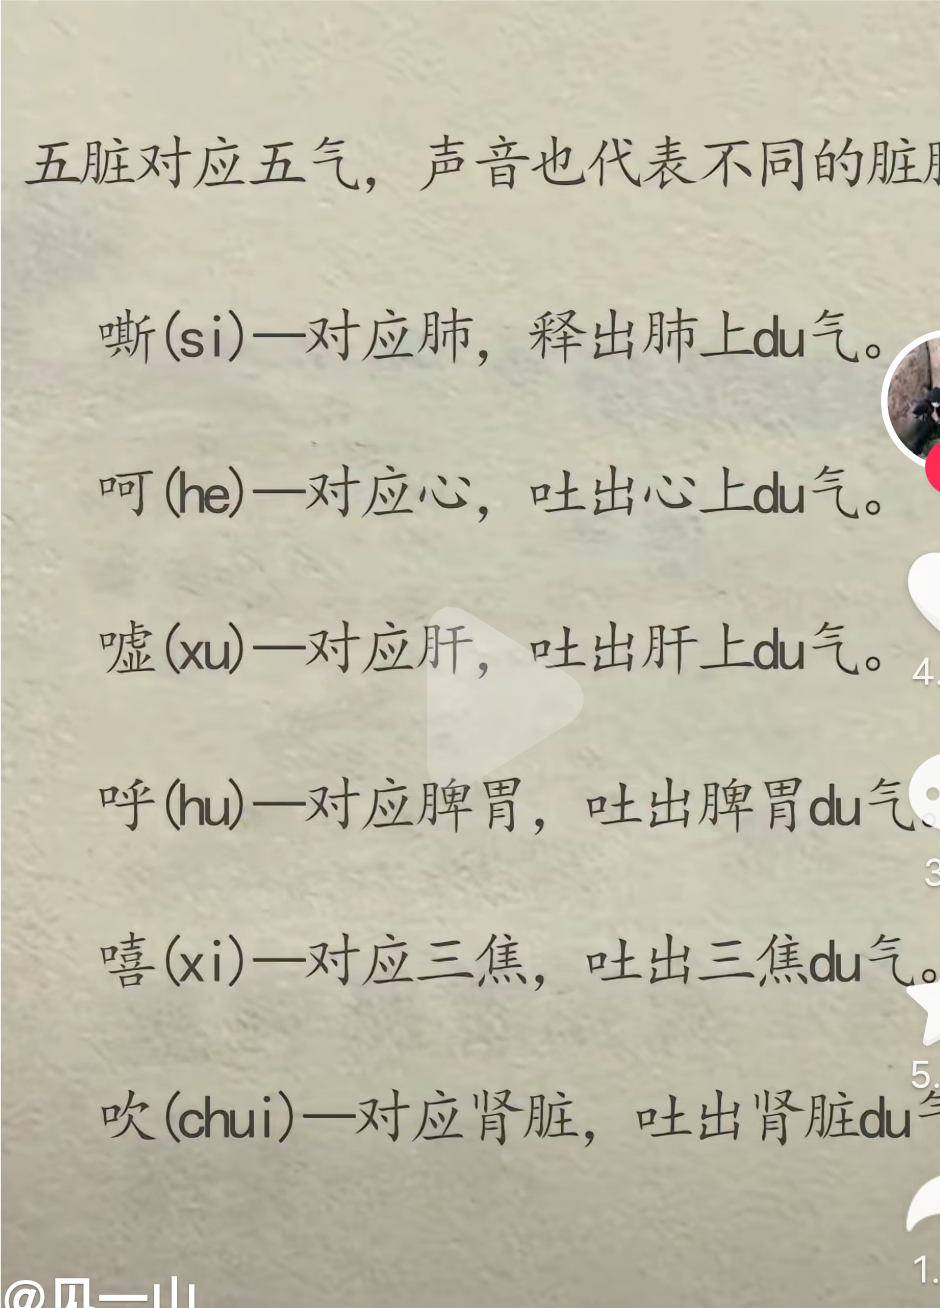 五脏对应五气，声音也代表不同的脏
嘶(si)—对应肺，释出肺上du气。
呵(he)—对应心，吐出心上du气。
嘘(xu)—对应肝，吐出肝上du气。
4.
呼(hu)—对应脾胃，吐出脾胃du气。
3
嘻(xi)—对应三焦，吐出三焦du气。
5.
吹(chui)—对应肾脏，吐出肾脏du气
1.
@见一山